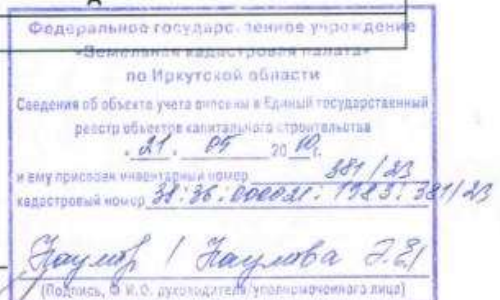 Федеральное государственное учреждение
«Земельная кадастровая палата»
по Иркутской области
Сведения об объекте учета внесены в Единый государственный
реестр объектов капитального строительства
"21" 05 2010 г.
и ему присвоен инвентарный номер 381/23
кадастровый номер 38:36:000021:1983:381/23
Наумов / Наумова Э.Е/
(Подпись, Ф.И.О. руководителя/уполномоченного лица)